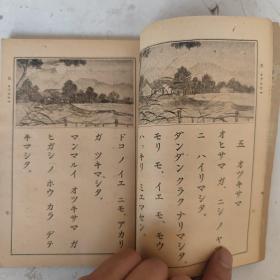 五 オツキサマ
オヒサマ ガ、ニシ ノ ヤ
ニ ハイリマシタ。
ダンダン クラク ナリマシタ。
モリ モ、イエ モ、モウ
ハッキリ ミエマセン。
ドコ ノ イエ ニモ、アカリ
ガ ツキマシタ。
マンマルイ オツキサマ ガ
ヒガシ ノ ホウ カラ デテ
キマシタ。